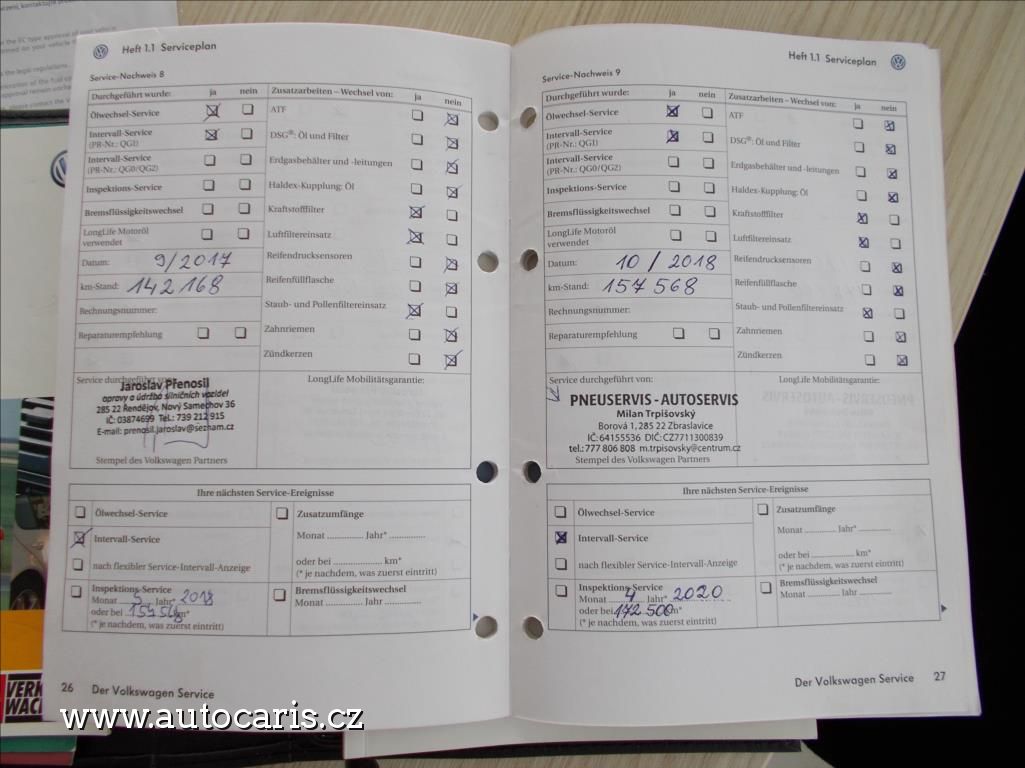 Heft 1.1 Serviceplan
Service-Nachweis 8
Durchgeführt wurde: ja nein
Ölwechsel-Service
Intervall-Service
(PR-Nr.: QG1)
Intervall-Service
(PR-Nr.: QG0/QG2)
Inspektions-Service
Bremsflüssigkeitswechsel
LongLife Motoröl
verwendet
Datum: 9/2017
km-Stand: 142 168
Rechnungsnummer:
Reparaturempfehlung
Zusatzarbeiten – Wechsel von: ja nein
ATF
DSG®: Öl und Filter
Erdgasbehälter und -leitungen
Haldex-Kupplung: Öl
Kraftstofffilter
Luftfiltereinsatz
Reifendrucksensoren
Reifenfüllflasche
Staub- und Pollenfiltereinsatz
Zahnriemen
Zündkerzen
Service durchgeführt von:
Jaroslav Přenosil
opravy a údržba silničních vozidel
285 22 Rendějov, Nový Samechov 36
IČ: 03874699 Tel.: 739 212 915
E-mail: prenosil.jaroslav@seznam.cz
Stempel des Volkswagen Partners
LongLife Mobilitätsgarantie:
Ihre nächsten Service-Ereignisse
Ölwechsel-Service
Intervall-Service
nach flexibler Service-Intervall-Anzeige
Inspektions-Service
Monat 5 Jahr* 2018
oder bei km*
(* je nachdem, was zuerst eintritt)
Zusatzumfänge
Monat Jahr*
oder bei km*
(* je nachdem, was zuerst eintritt)
Bremsflüssigkeitswechsel
Monat Jahr
26 Der Volkswagen Service
Heft 1.1 Serviceplan
Service-Nachweis 9
Durchgeführt wurde: ja nein
Ölwechsel-Service
Intervall-Service
(PR-Nr.: QG1)
Intervall-Service
(PR-Nr.: QG0/QG2)
Inspektions-Service
Bremsflüssigkeitswechsel
LongLife Motoröl
verwendet
Datum: 10 / 2018
km-Stand: 157 568
Rechnungsnummer:
Reparaturempfehlung
Zusatzarbeiten – Wechsel von: ja nein
ATF
DSG®: Öl und Filter
Erdgasbehälter und -leitungen
Haldex-Kupplung: Öl
Kraftstofffilter
Luftfiltereinsatz
Reifendrucksensoren
Reifenfüllflasche
Staub- und Pollenfiltereinsatz
Zahnriemen
Zündkerzen
Service durchgeführt von:
PNEUSERVIS - AUTOSERVIS
Milan Trpišovský
Borová 1, 285 22 Zbraslavice
IČ: 64155536 DIČ: CZ7711300839
tel.: 777 806 808 m.trpisovsky@centrum.cz
Stempel des Volkswagen Partners
LongLife Mobilitätsgarantie:
Ihre nächsten Service-Ereignisse
Ölwechsel-Service
Intervall-Service
nach flexibler Service-Intervall-Anzeige
Inspektions-Service
Monat Jahr* 2020
oder bei 172 500 km*
(* je nachdem, was zuerst eintritt)
Zusatzumfänge
Monat Jahr*
oder bei km*
(* je nachdem, was zuerst eintritt)
Bremsflüssigkeitswechsel
Monat Jahr
Der Volkswagen Service 27
www.autocaris.cz